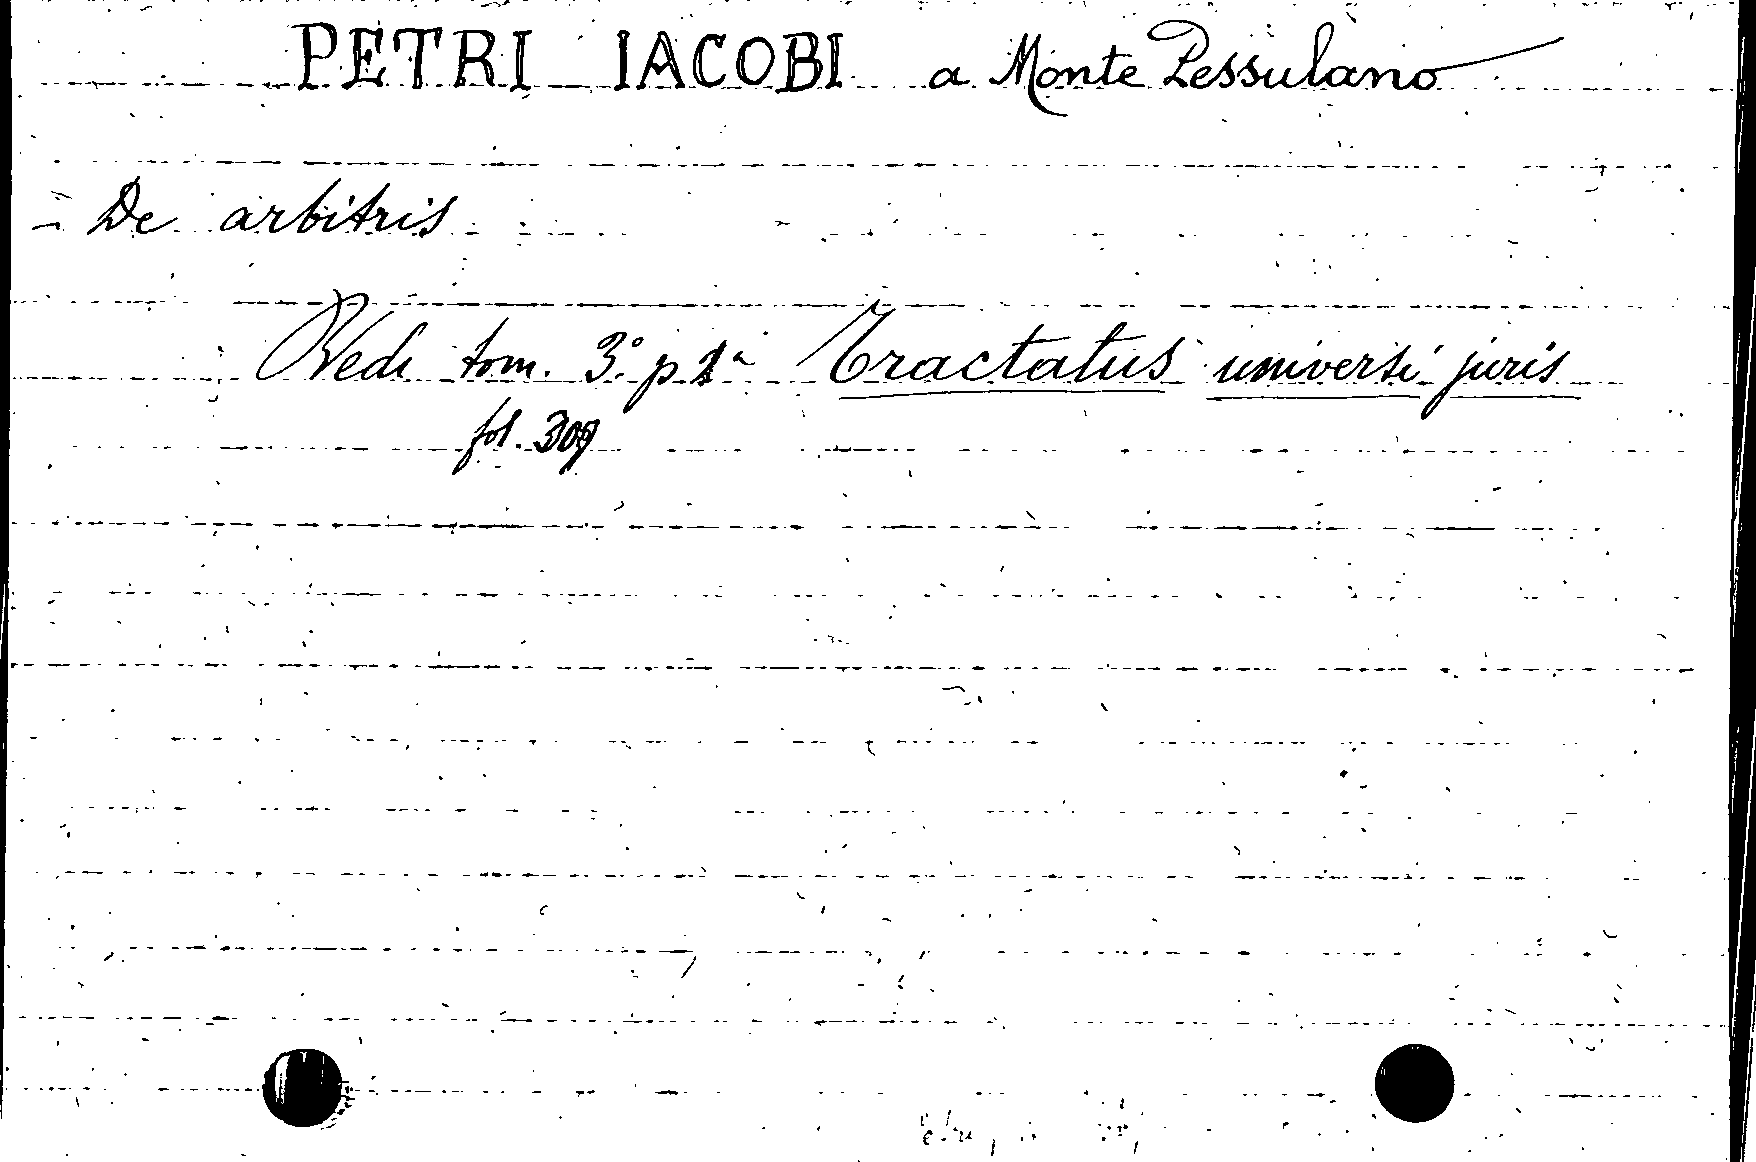 PETRI IACOBI a Monte Pessulano
- De arbitris
Vedi tom. 3.º p. 1ª Tractatus universi juris
fol. 309